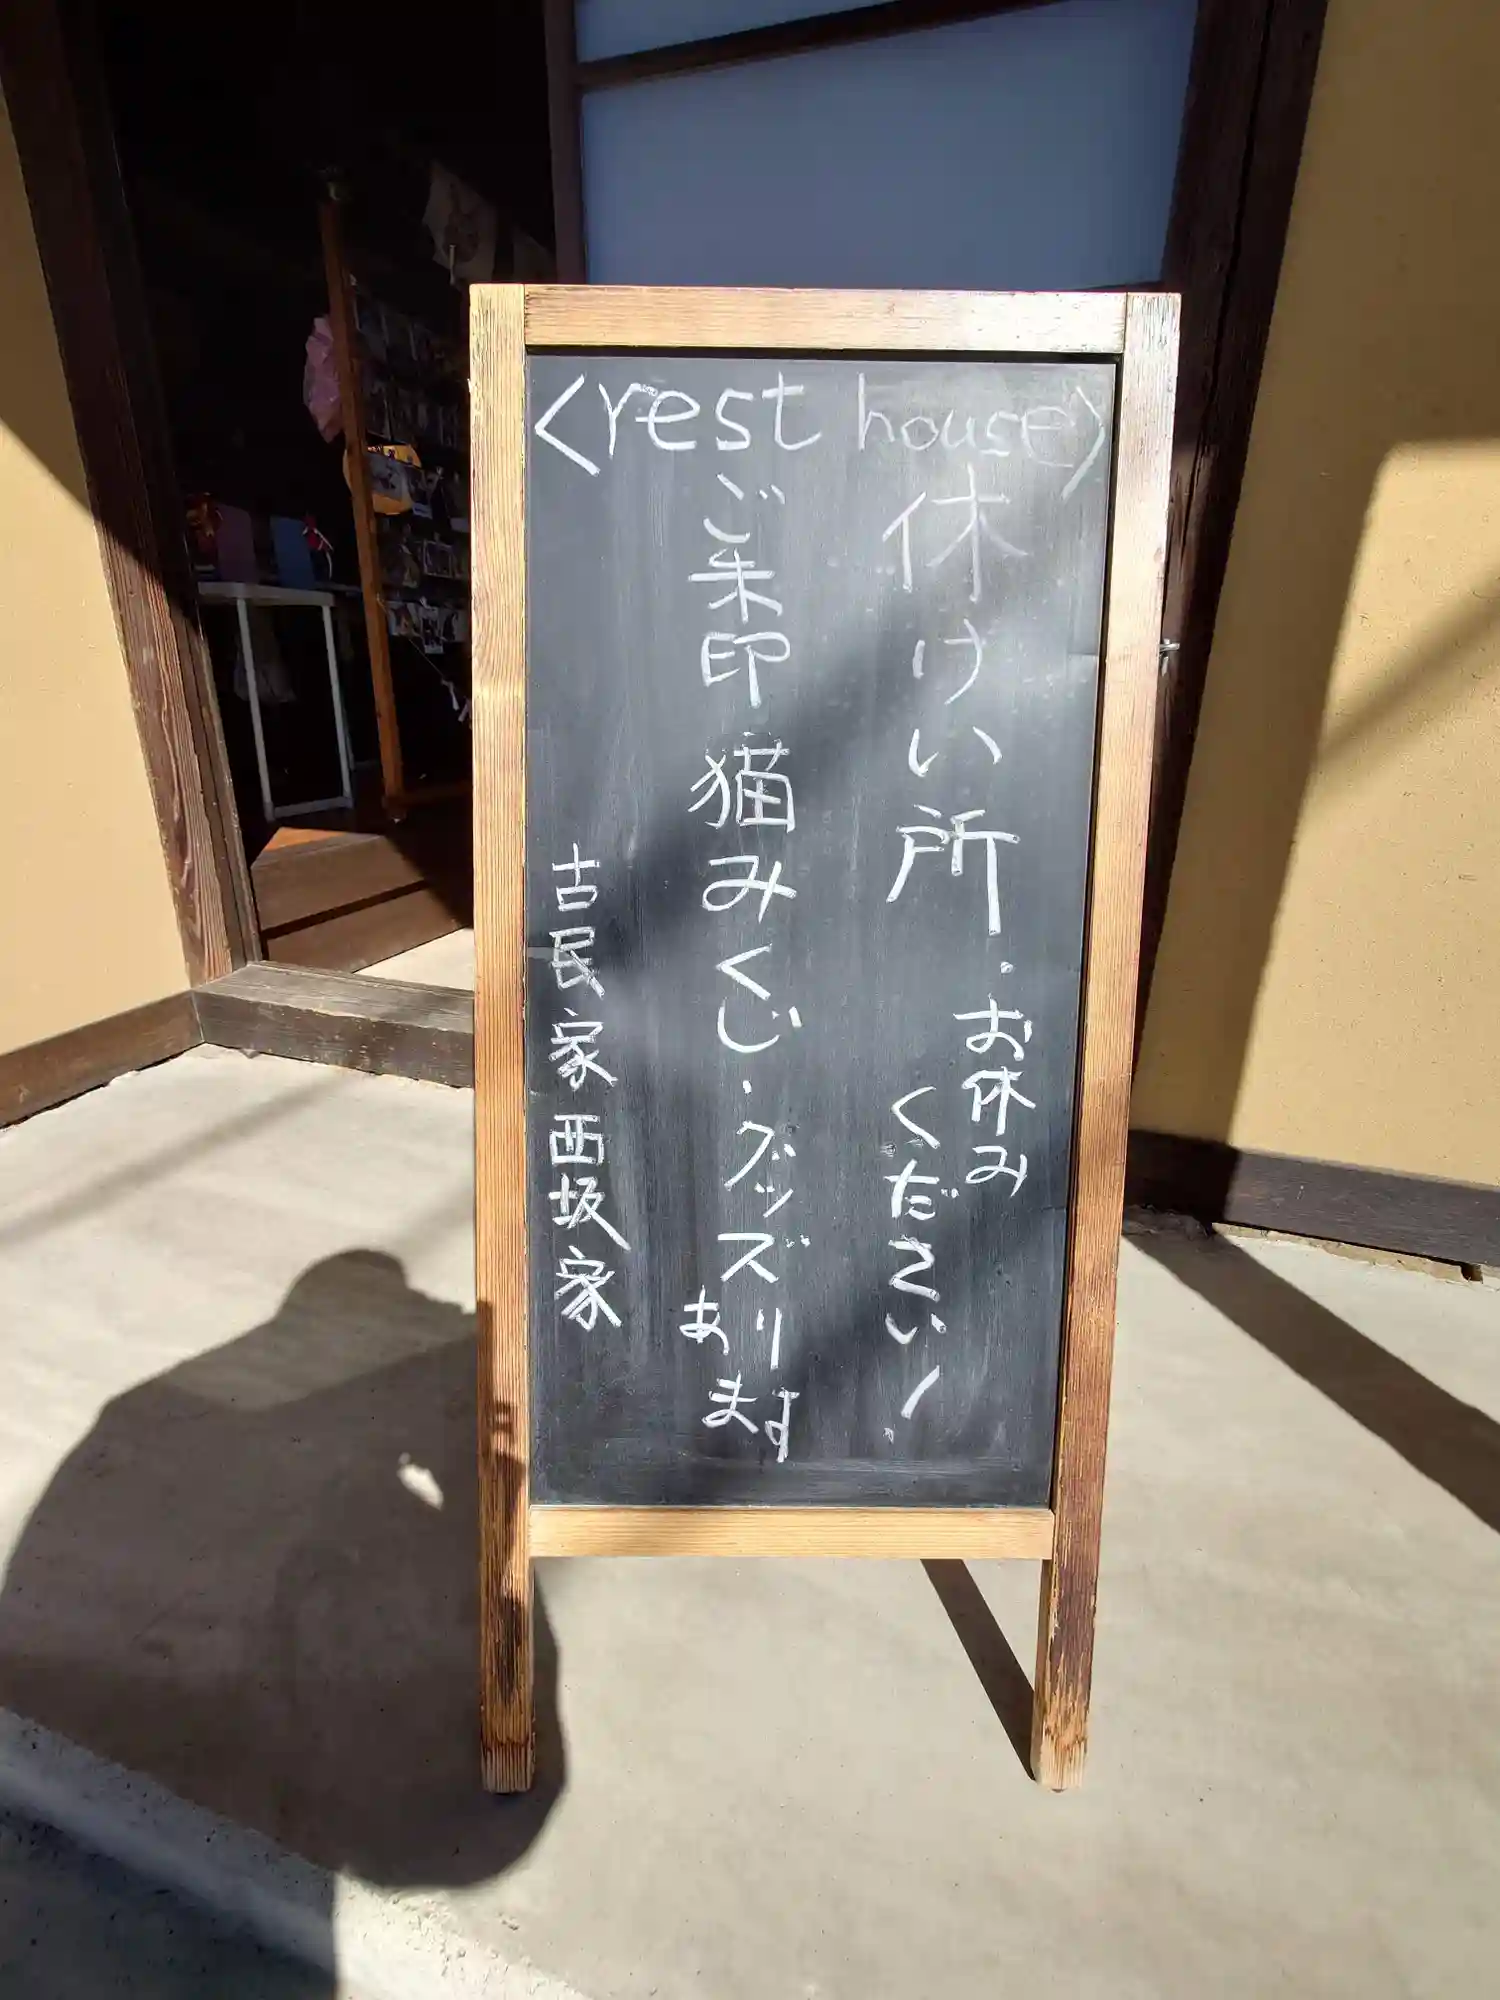 <rest house>
休けい所・お休みください!
ご朱印 猫みくじ・グッズあります
古民家 西坂家